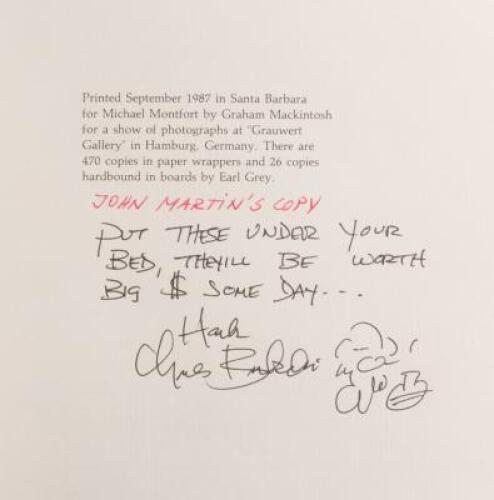 Printed September 1987 in Santa Barbara
for Michael Montfort by Graham Mackintosh
for a show of photographs at "Grauwert
Gallery" in Hamburg, Germany. There are
470 copies in paper wrappers and 26 copies
handbound in boards by Earl Grey.
JOHN MARTIN'S COPY
PUT THESE UNDER YOUR
BED, THEY'LL BE WORTH
BIG $ SOME DAY---
Hank
Charles Bukowski